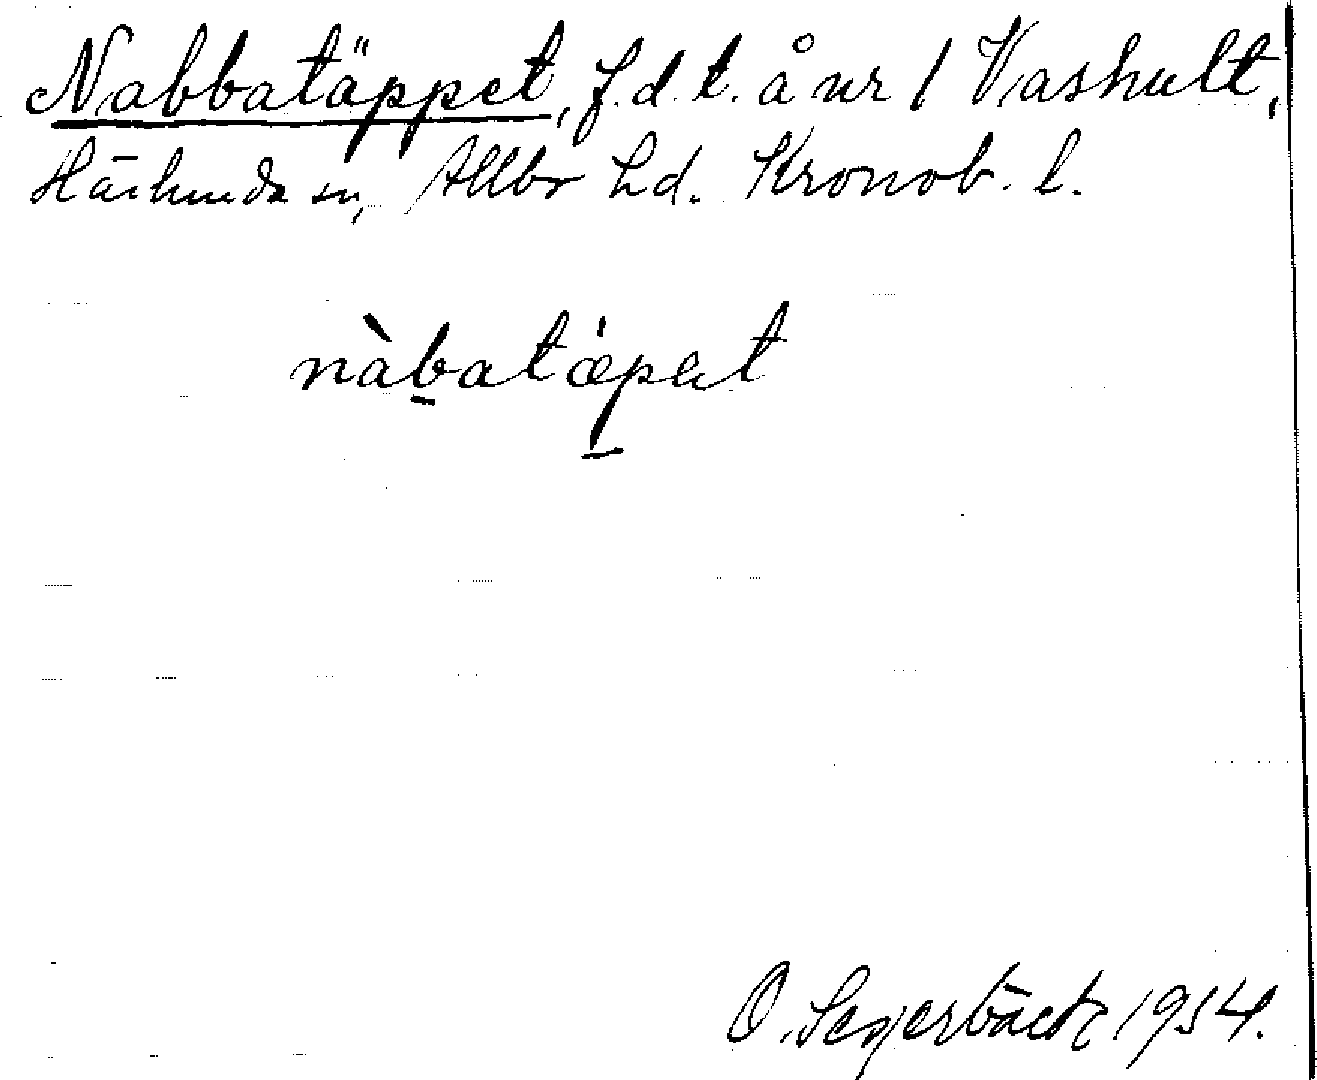 Nabbatäppet, f.d. t. å nr 1 Vashult,
Härlunda sn, Allbo hd. Kronob. l.
nàbatæ̀pət
O. Segerbäck 1954.